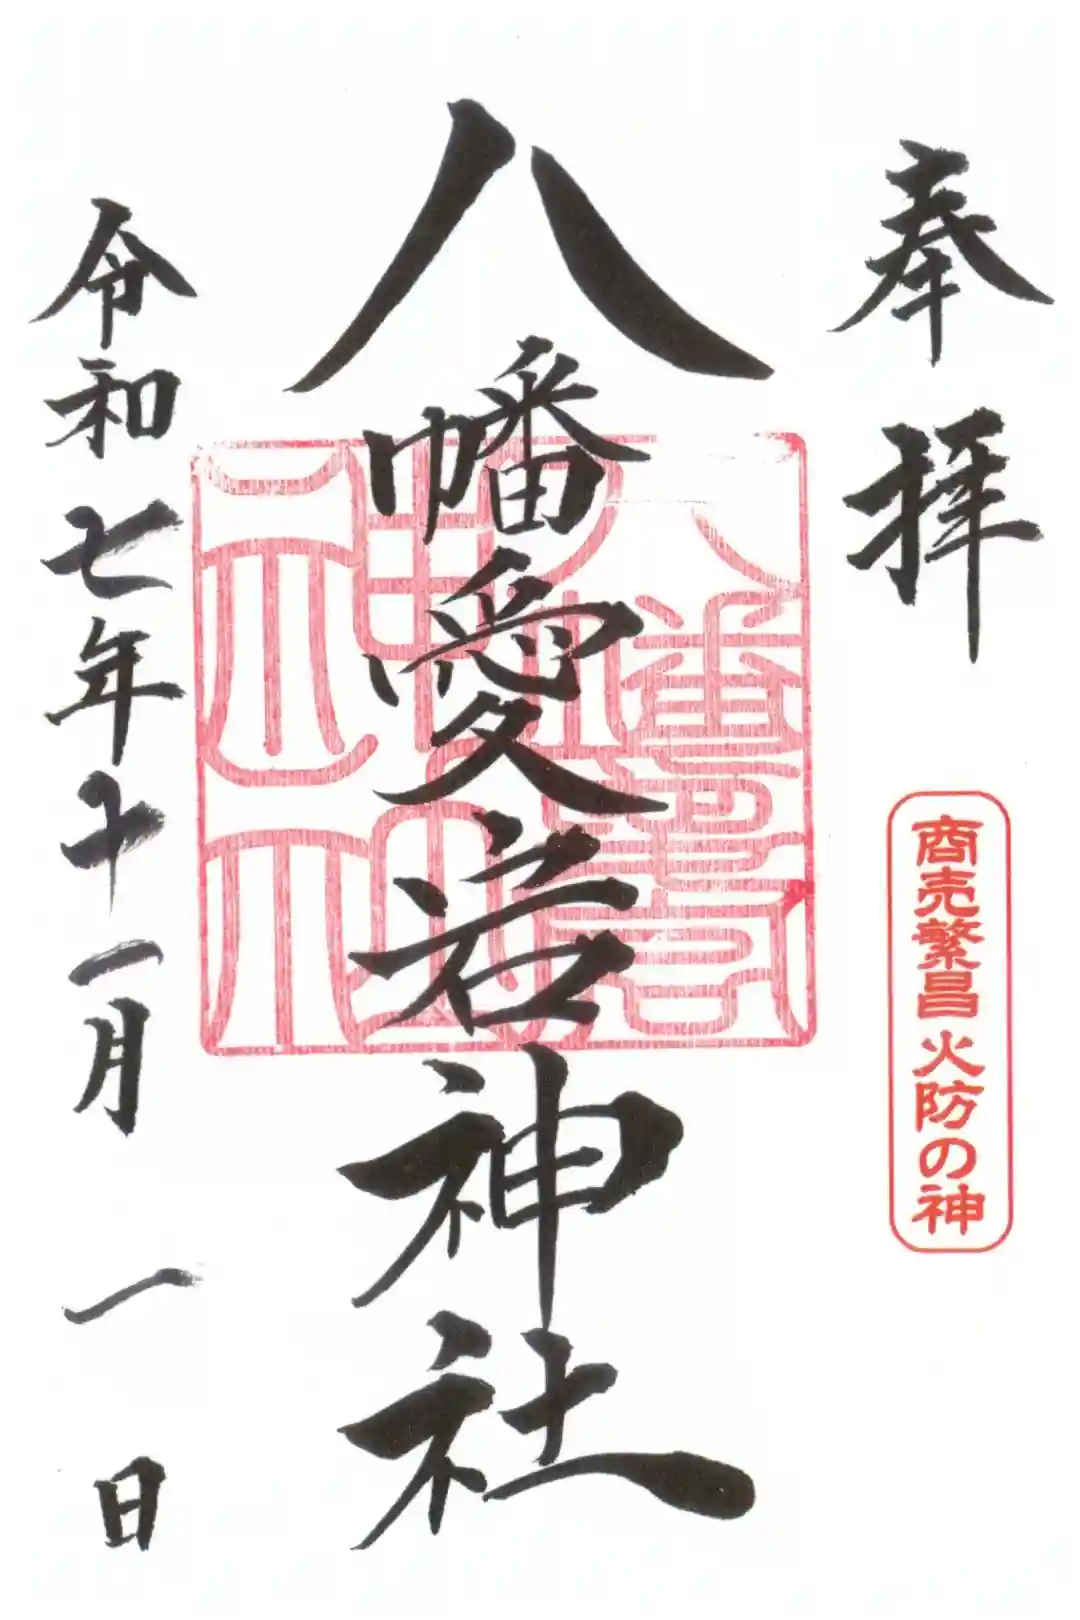 奉拝
商売繁昌 火防の神
八幡愛宕神社
令和七年十一月一日